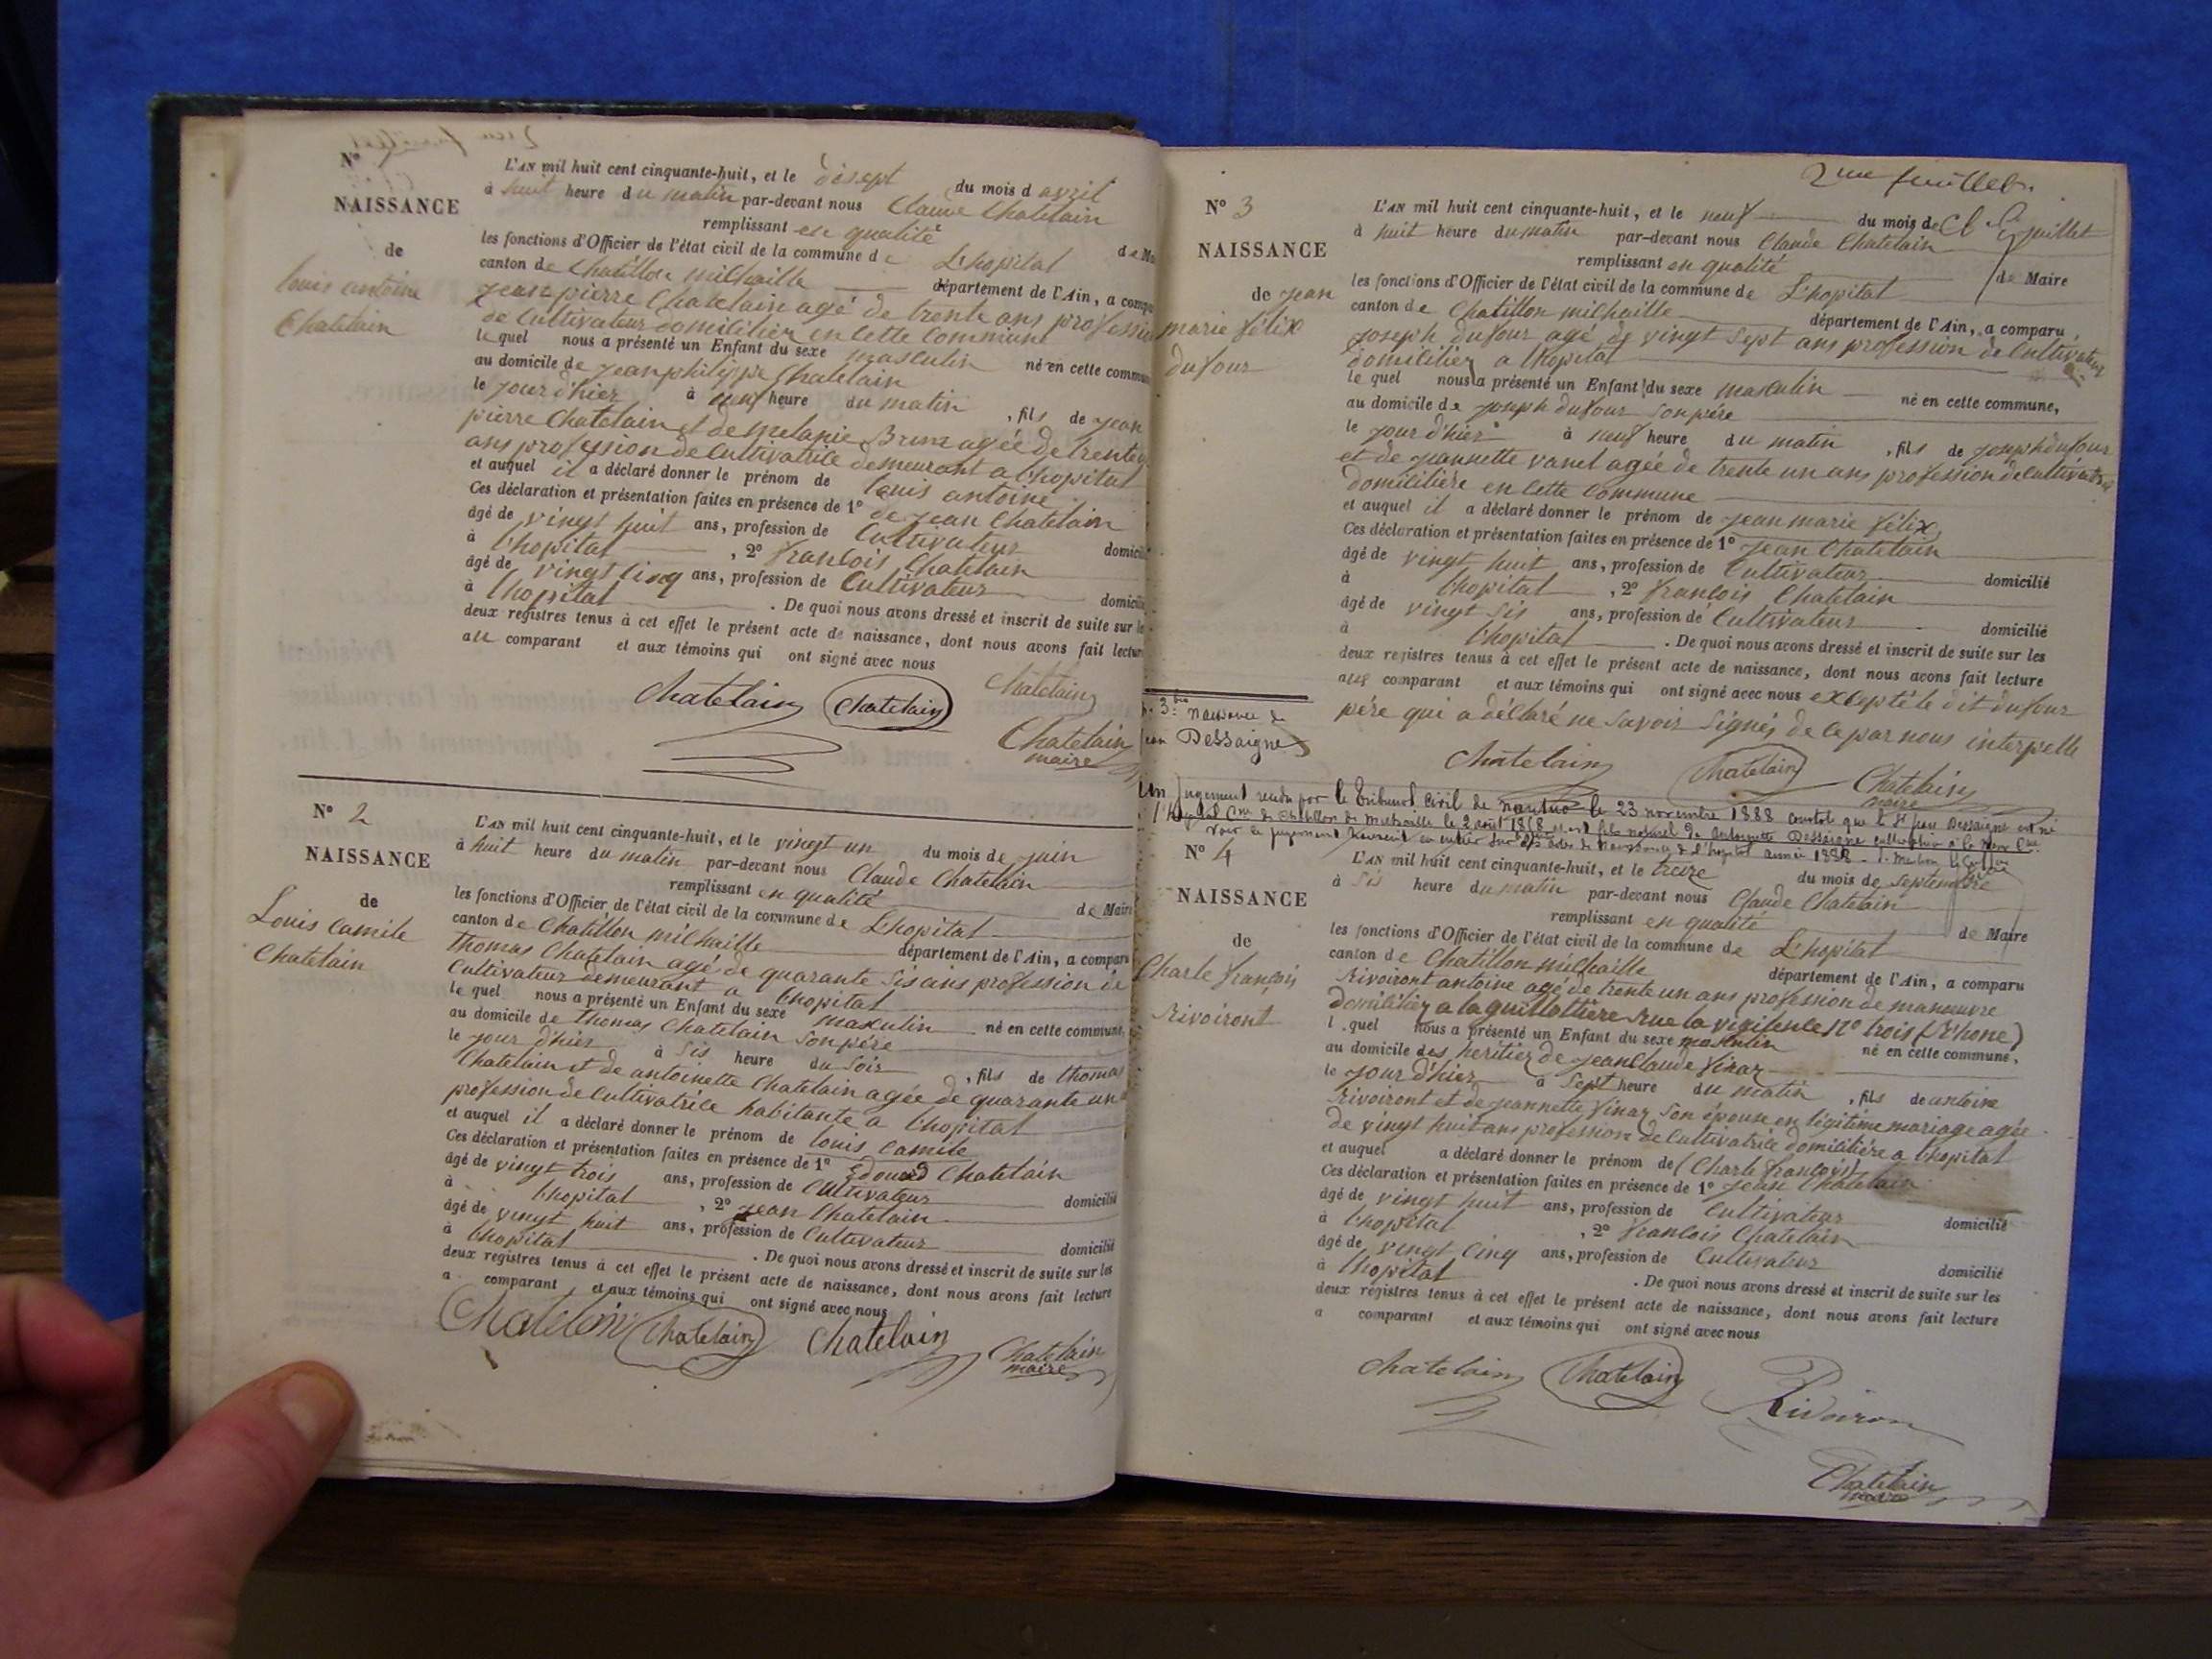 N°
NAISSANCE
de
louis antoine
Chatelain
L'AN mil huit cent cinquante-huit, et le disept du mois d avril
à huit heure du matin par-devant nous Claude Chatelain
remplissant en qualité de Ma
les fonctions d'Officier de l'état civil de la commune de L'hopital
canton de Chatillon milhaille département de l'Ain, a compa
jean pierre Chatelain agé de trente ans profession
de Cultivateur domicilier en cette Commune
le quel nous a présenté un Enfant du sexe masculin né en cette commun
au domicile de jean philippe Chatelain
le jour d'hier à neuf heure du matin , fils de jean
pierre Chatelain et de melanie Brun agée de trente
ans profession de Cultivatrice demeurant a l'hopital
et auquel il a déclaré donner le prénom de louis antoine
Ces déclaration et présentation faites en présence de 1° de jean Chatelain
âgé de vingt huit ans, profession de Cultivateur domicili
à l'hopital , 2° francois Chatelain
âgé de vingt cinq ans, profession de Cultivateur domicili
à l'hopital . De quoi nous avons dressé et inscrit de suite sur le
deux registres tenus à cet effet le présent acte de naissance, dont nous avons fait lectur
au comparant et aux témoins qui ont signé avec nous
Chatelain Chatelain Chatelain
Chatelain
maire
N° 2
NAISSANCE
de
Louis Camile
Chatelain
L'AN mil huit cent cinquante-huit, et le vingt un du mois de juin
à huit heure du matin par-devant nous Claude Chatelain
remplissant en qualité de Maire
les fonctions d'Officier de l'état civil de la commune de L'hopital
canton de Chatillon milhaille département de l'Ain, a comparu
Thomas Chatelain agé de quarante sis ans profession de
Cultivateur demeurant a l'hopital
le quel nous a présenté un Enfant du sexe masculin né en cette commune,
au domicile de thomas Chatelain son père
le jour d'hier à sis heure du soir , fils de thomas
Chatelain et de antoinette Chatelain agée de quarante un
profession de Cultivatrice habitante a l'hopital
et auquel il a déclaré donner le prénom de louis camile
Ces déclaration et présentation faites en présence de 1° Edouad Chatelain
âgé de vingt trois ans, profession de Cultivateur domicilié
à l'hopital , 2° jean Chatelain
âgé de vingt huit ans, profession de Cultivateur domicilié
à l'hopital . De quoi nous avons dressé et inscrit de suite sur les
deux registres tenus à cet effet le présent acte de naissance, dont nous avons fait lecture
a comparant et aux témoins qui ont signé avec nous
Chatelain Chatelain Chatelain Chatelain
maire
2me feuillet
N° 3
NAISSANCE
de jean
marie félix
dufour
L'AN mil huit cent cinquante-huit, et le neuf du mois de juillet
à huit heure du matin par-devant nous Claude Chatelain
remplissant en qualité de Maire
les fonctions d'Officier de l'état civil de la commune de L'hopital
canton de Chatillon milhaille département de l'Ain, a comparu
joseph dufour agé de vingt sept ans profession de Cultivateur
domicilier a l'hopital
le quel nous a présenté un Enfant du sexe masculin né en cette commune,
au domicile de joseph dufour son père
le jour d'hier à neuf heure du matin , fils de joseph dufour
et de jeannette vanel agée de trente un ans profession de Cultivatrice
domicilière en cette commune
et auquel il a déclaré donner le prénom de jean marie félix
Ces déclaration et présentation faites en présence de 1° jean Chatelain
âgé de vingt huit ans, profession de Cultivateur domicilié
à l'hopital , 2° francois Chatelain
âgé de vingt sis ans, profession de Cultivateur domicilié
à l'hopital . De quoi nous avons dressé et inscrit de suite sur les
deux registres tenus à cet effet le présent acte de naissance, dont nous avons fait lecture
au comparant et aux témoins qui ont signé avec nous excepté le dit dufour
père qui a déclaré ne savoir signés de ce par nous interpelle
Chatelain Chatelain Chatelain
maire
3bis naissance de
Jean Dessaigne
Un jugement rendu par le Tribunal civil de nantua le 23 novembre 1888 constate que le Sr jean Dessaigne est né
l'Hopital Con de Chatillon de michaille le 2 août 1858 et est fils naturel de antoinette Dessaigne cultivatrice
Voir ce jugement transcrit en entier sur les actes de naissance de l'hopital année 1888
N° 4
NAISSANCE
de
Charle françois
Rivoiront
L'AN mil huit cent cinquante-huit, et le treize du mois de septembre
à sis heure du matin par-devant nous Claude Chatelain
remplissant en qualité de Maire
les fonctions d'Officier de l'état civil de la commune de L'hopital
canton de Chatillon milhaille département de l'Ain, a comparu
Rivoiront antoine agé de trente un ans profession de manœuvre
domicilier a la guillottiere rue la vigilence N° trois (Rhone)
l quel nous a présenté un Enfant du sexe masculin né en cette commune,
au domicile des heritier de jean Claude finaz
le jour d'hier à sept heure du matin , fils de antoine
Rivoiront et de jeannette finaz son épouse en légitime mariage agée
de vingt huit ans profession de Cultivatrice domicilière a l'hopital
et auquel a déclaré donner le prénom de (Charle francois)
Ces déclaration et présentation faites en présence de 1° jean Chatelain
âgé de vingt huit ans, profession de Cultivateur domicilié
à l'hopital , 2° francois Chatelain
âgé de vingt cinq ans, profession de Cultivateur domicilié
à l'hopital . De quoi nous avons dressé et inscrit de suite sur les
deux registres tenus à cet effet le présent acte de naissance, dont nous avons fait lecture
a comparant et aux témoins qui ont signé avec nous
Chatelain Chatelain Rivoiron
Chatelain
maire